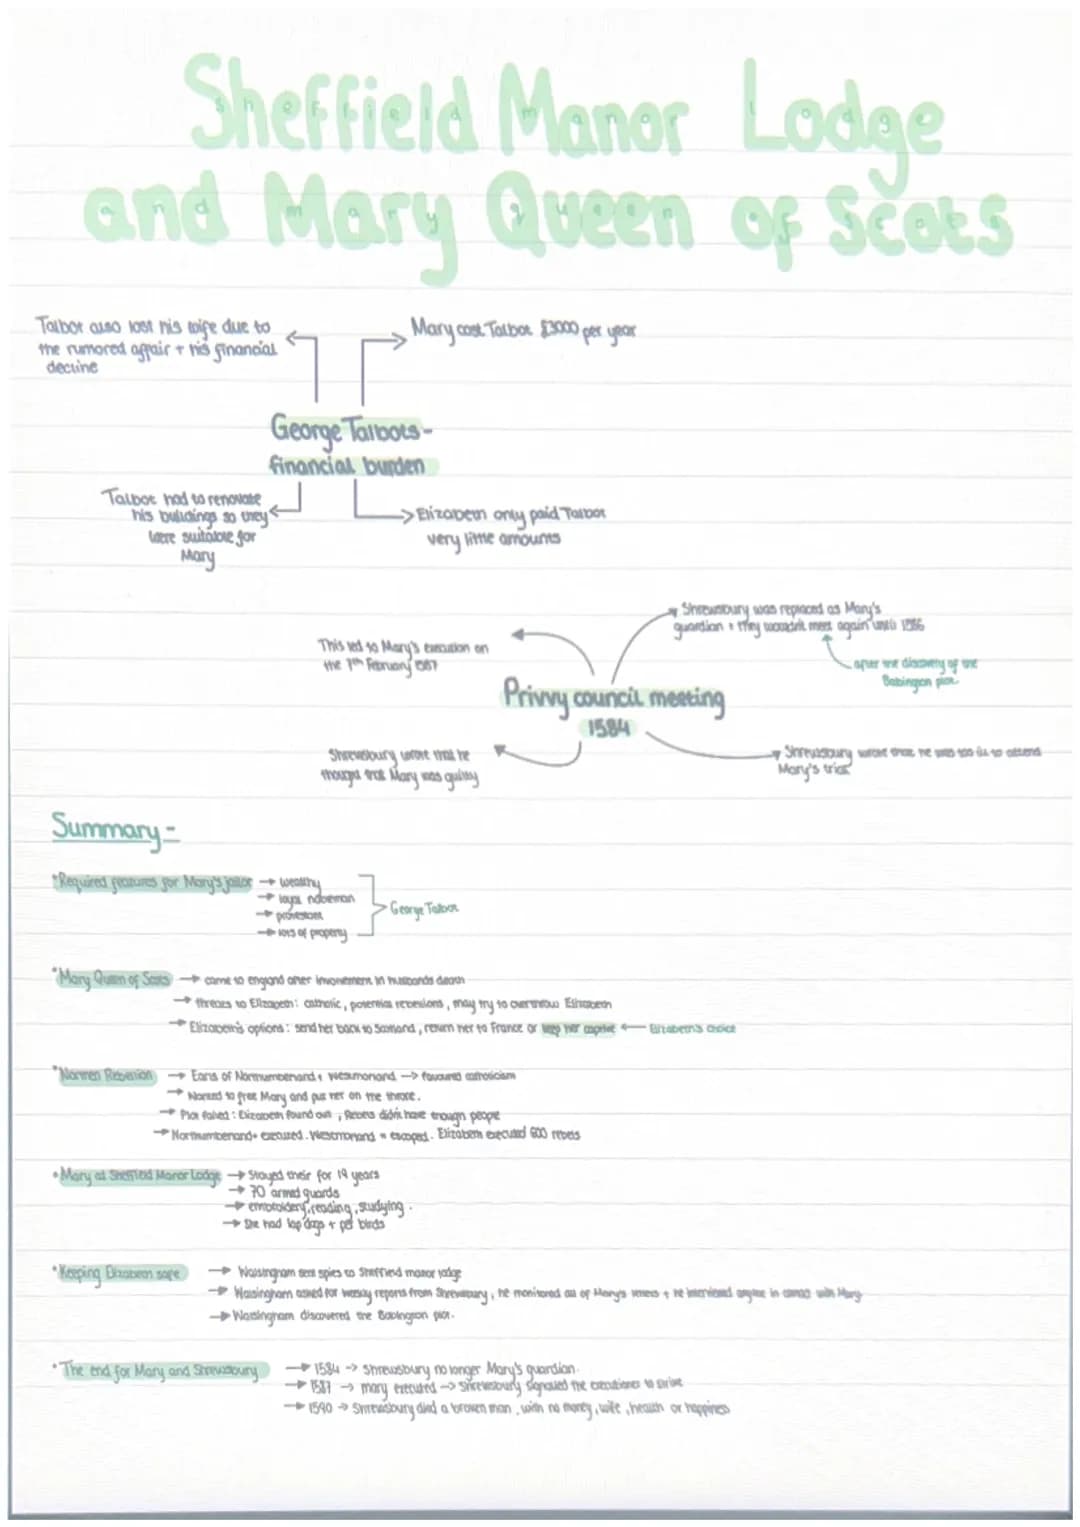 Sheffield Manor Lodge
and Mary Queen of Scots
Talbot also lost his wife due to
the rumored affair + his financial
decline
Mary cost Talbot £3000 per year
George Talbots-
financial burden
Talbot had to renovate
his buildings so they
were suitable for
Mary
Elizabeth only paid Talbot
very little amounts
Shrewsbury was replaced as Mary's
guardian + they wouldn't meet again until 1586
after the discovery of the
Babington plot.
This led to Mary's execution on
the 7th February 1587
Privvy council meeting
1584
Shrewsbury wrote that he
thought that Mary was guilty
Shrewsbury wrote that he was too ill to attend
Mary's trial
Summary-
*Required features for Mary's jailor → wealthy
→ loyal nobleman
→ protestant
→ lots of property
George Talbot
*Mary Queen of Scots → came to england after involvement in husbands death
→ threats to Elizabeth: catholic, potential rebellions, may try to overthrow Elizabeth
→ Elizabeth's options: send her back to Scotland, return her to France or keep her captive ← Elizabeth's choice
*Northern Rebellion → Earls of Northumberland + Westmorland → favoured catholicism
→ Wanted to free Mary and put her on the throne.
→ Plot failed: Elizabeth found out, Rebels didn't have enough people
→ Northumberland = executed. Westmorland = escaped. Elizabeth executed 600 rebels
•Mary at Sheffield Manor Lodge → Stayed their for 14 years
→ 70 armed guards
→ embroidery, reading, studying.
→ She had lap dogs + pet birds
*Keeping Elizabeth safe → Walsingham sent spies to Sheffield manor lodge
→ Walsingham asked for weekly reports from Shrewsbury, he monitored all of Marys letters + he interviewed anyone in contact with Mary
→ Walsingham discovered the Babington plot.
•The end for Mary and Shrewsbury → 1584 → Shrewsbury no longer Mary's guardian.
→ 1587 → mary executed → Shrewsbury signalled the executioner to strike
→ 1590 → Shrewsbury died a broken man, with no money, wife, health or happiness